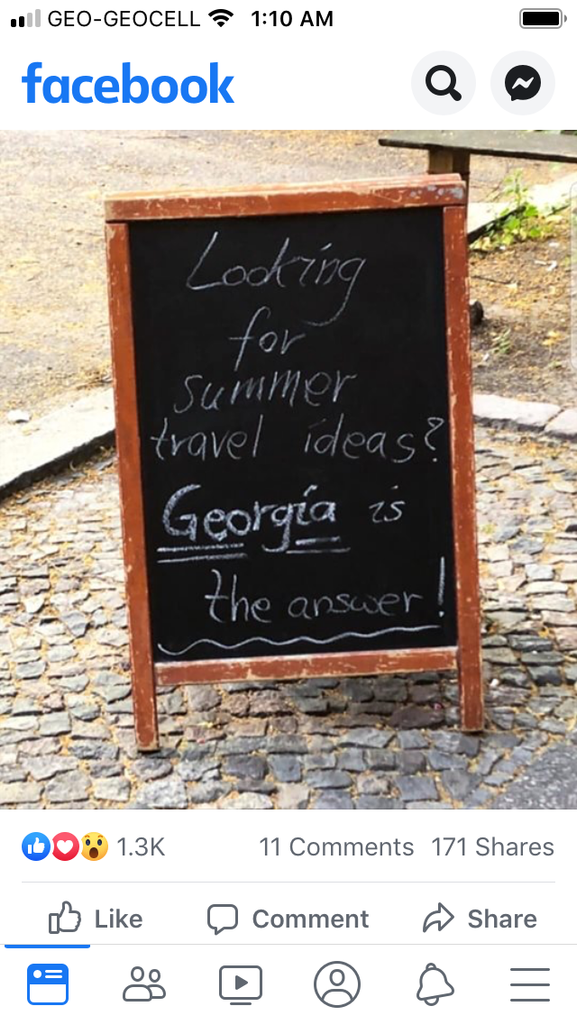 GEO-GEOCELL 1:10 AM
facebook
Looking
for
summer
travel ideas?
Georgia is
the answer!
1.3K 11 Comments 171 Shares
Like Comment Share